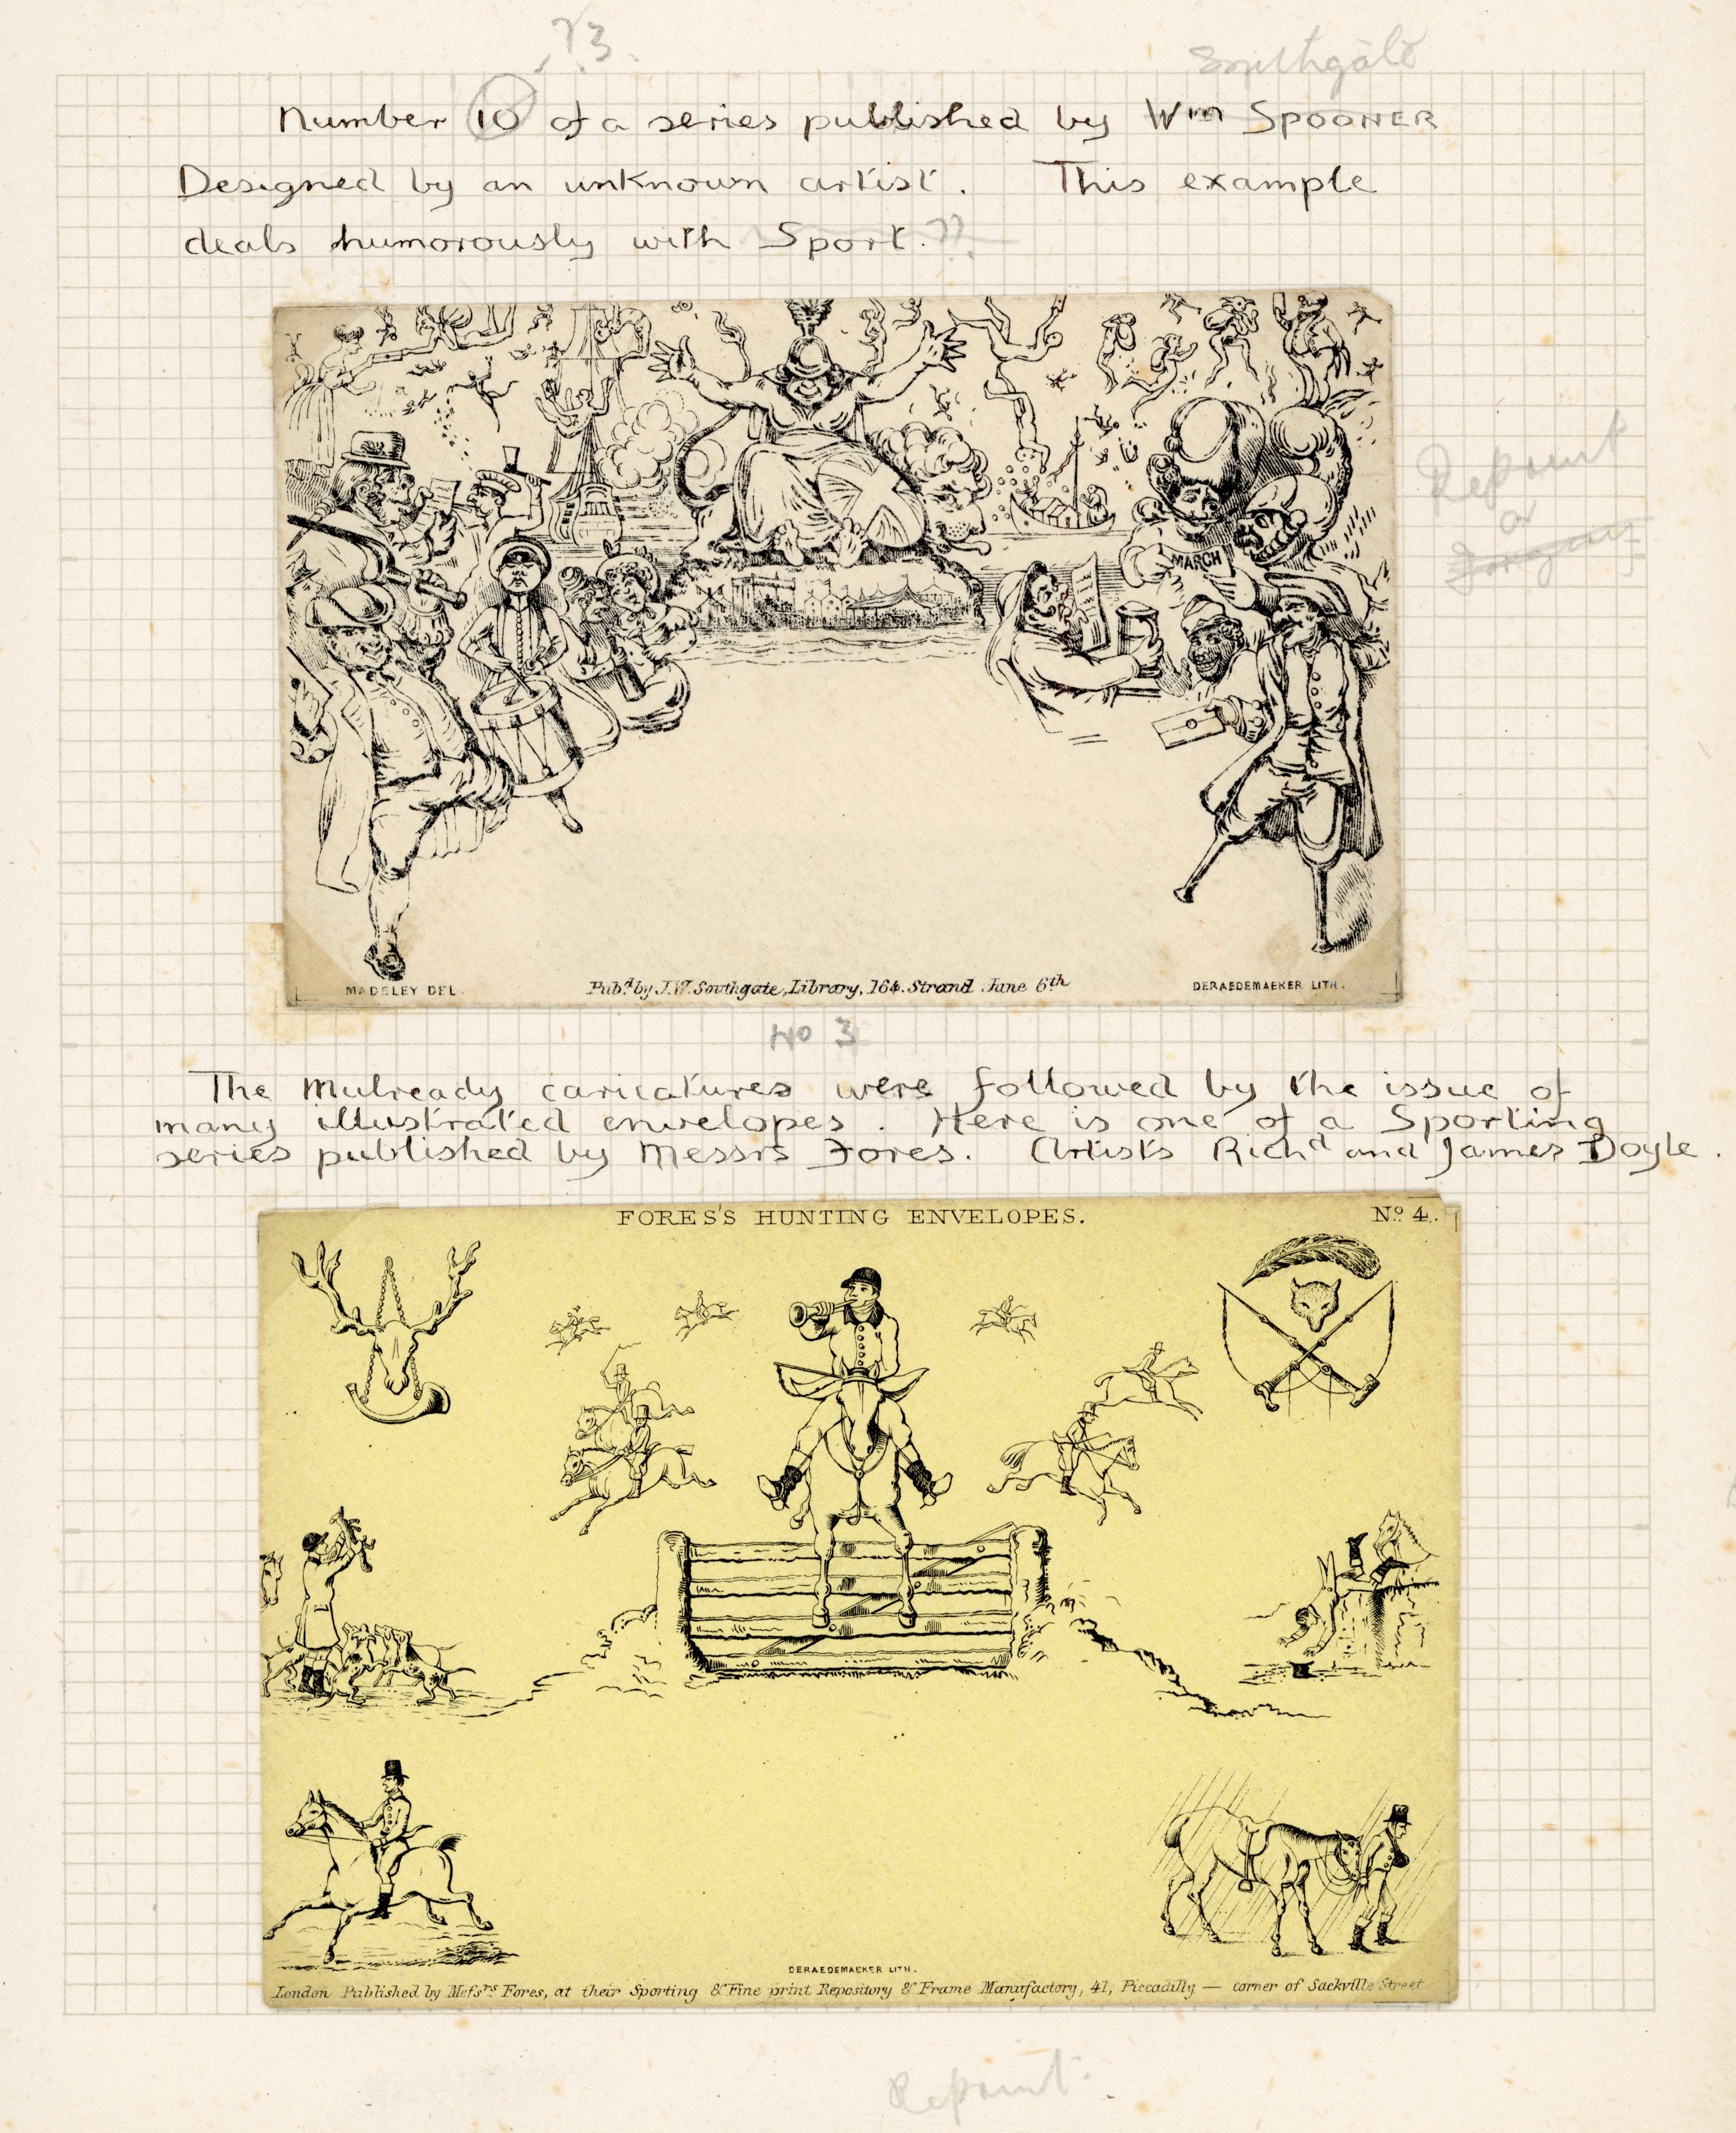 ?3.
Southgate
Number 10 of a series published by Wm SPOONER
Designed by an unknown artist. This example
deals humorously with Sport. ??
Reprint
or
MARCH
MADELEY DEL.
Pubd. by J.W. Southgate, Library, 164. Strand June 6th
DERAEDEMAEKER LITH.
No 3
The Mulready caricatures were followed by the issue of
many illustrated envelopes. Here is one of a Sporting
series published by Messrs Fores. Artists Richd and James Doyle.
FORES'S HUNTING ENVELOPES.
No. 4.
DERAEDEMAEKER LITH.
London Published by Mefsrs Fores, at their Sporting & Fine print Repository & Frame Manufactory, 41, Piccadilly — corner of Sackville Street
Reprint.